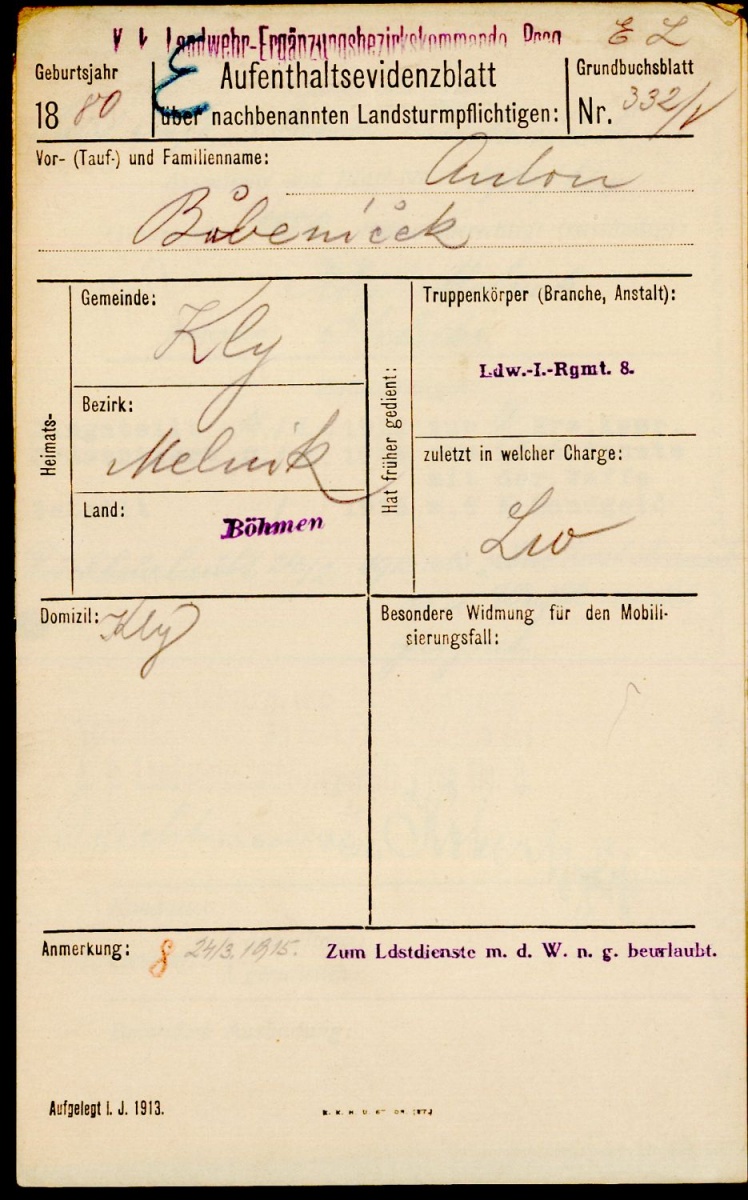 K. k. Landwehr-Ergänzungsbezirkskommando Prag
E L
Geburtsjahr
1880
E
Aufenthaltsevidenzblatt
über nachbenannten Landsturmpflichtigen:
Grundbuchsblatt
Nr. 332/V
Vor- (Tauf-) und Familienname:
Anton
Bůbeníček
Heimats-
Gemeinde:
Kly
Bezirk:
Melnik
Land:
Böhmen
Hat früher gedient:
Truppenkörper (Branche, Anstalt):
Ldw.-I.-Rgmt. 8.
zuletzt in welcher Charge:
Lw
Domizil: Klý
Besondere Widmung für den Mobili-
sierungsfall:
Anmerkung: 24/3. 1915. Zum Ldstdienste m. d. W. n. g. beurlaubt.
Aufgelegt i. J. 1913.